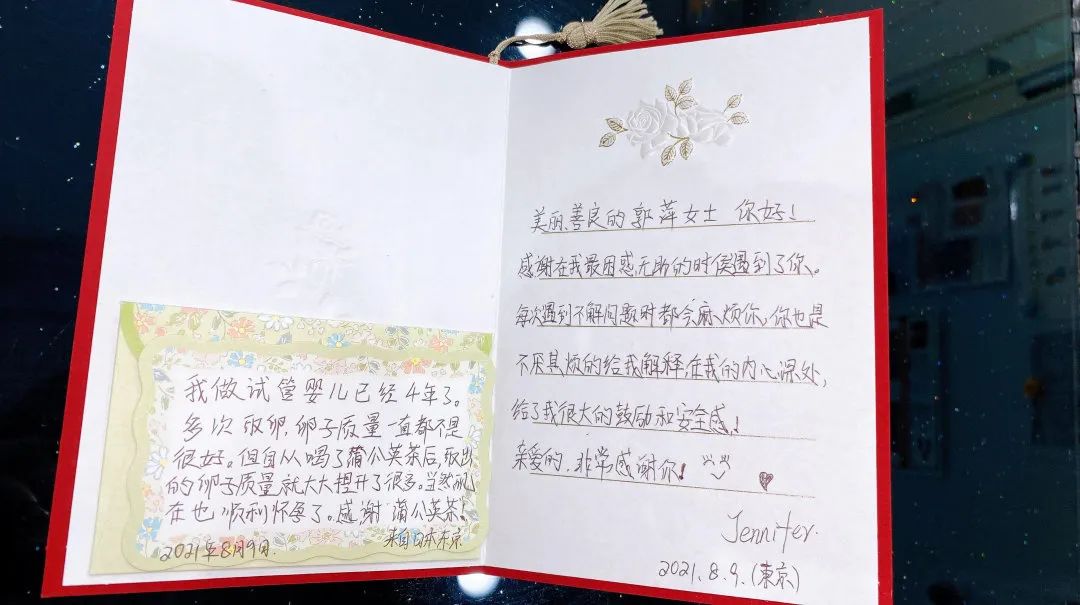 我做试管婴儿已经4年了。
多次取卵,卵子质量一直都不是
很好。但自从喝了蒲公英茶后,取出
的卵子质量就大大提升了很多。当然现
在也顺利怀孕了。感谢蒲公英茶!
2021年8月9日.
来自日本东京
美丽、善良的郭萍女士 你好!
感谢在我最困惑无助的时候遇到了你、。
每次遇到不解问题时都会麻烦你,你也是
不厌其烦的给我解释,在我的内心深处,
给了我很大的鼓励和安全感!
亲爱的,非常感谢你!
Jennifer.
2021.8.9.(東京)